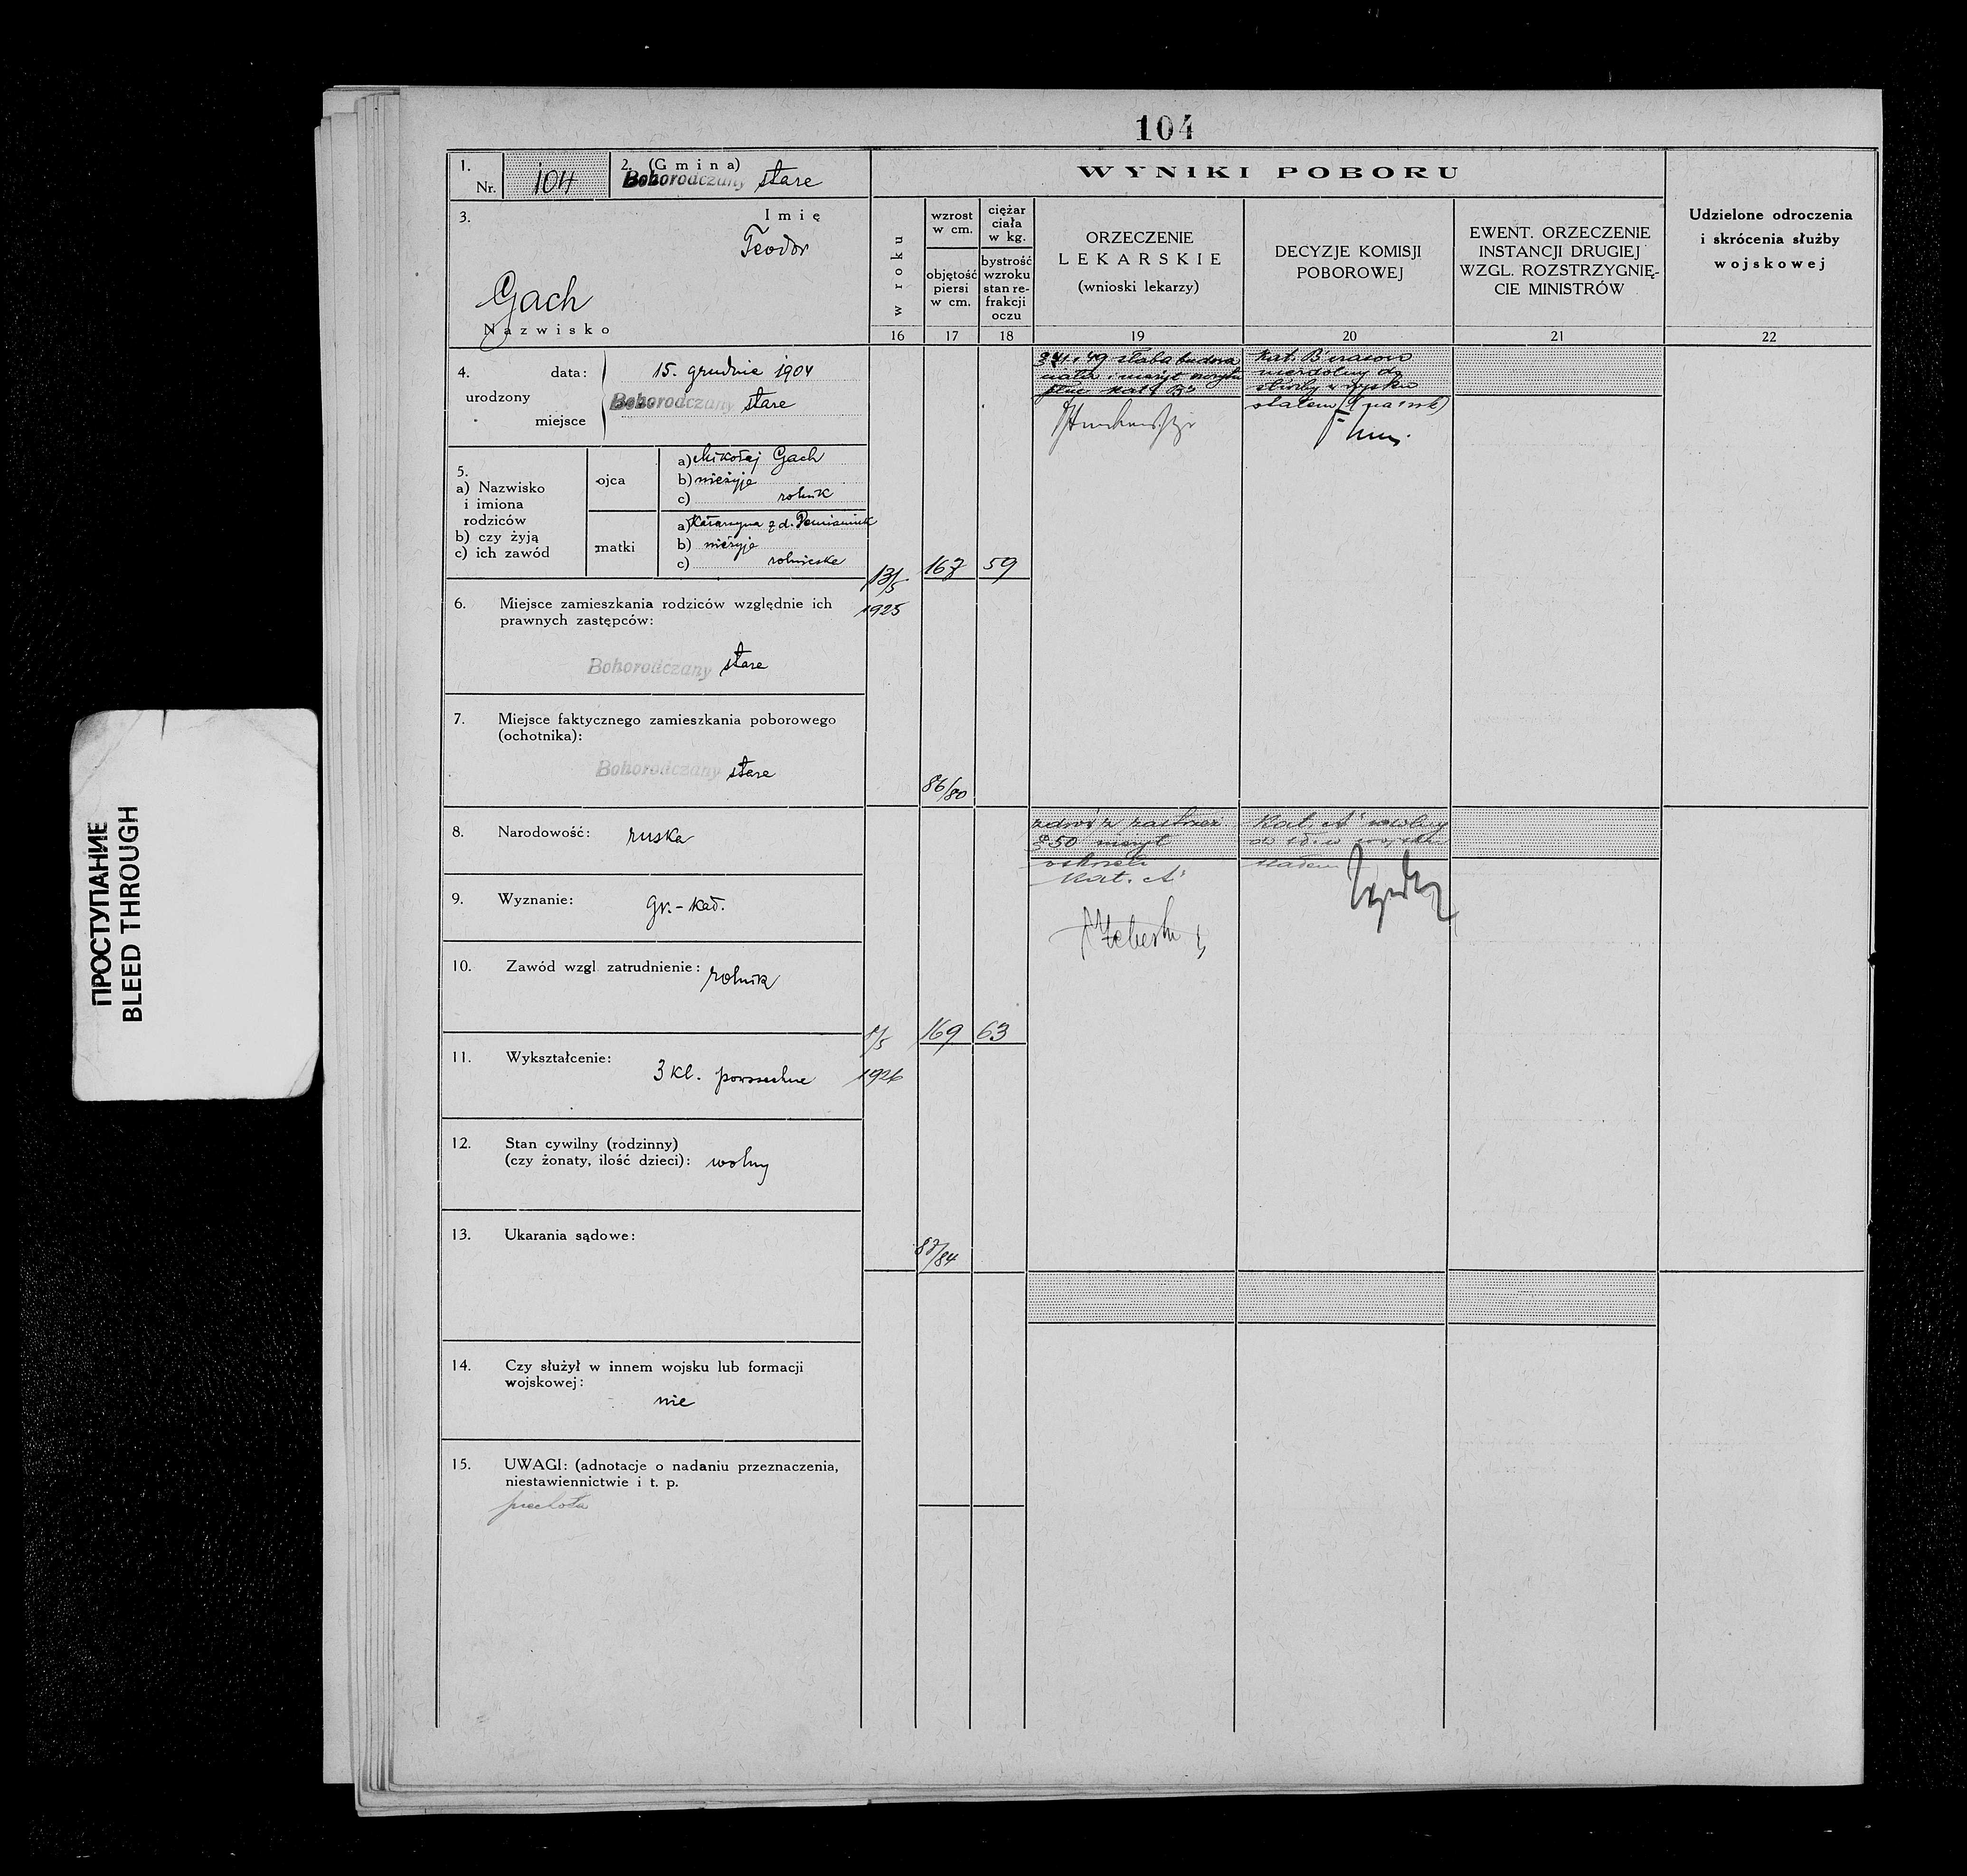 104
1.
Nr. 104
2. (Gmina)
Bohorodczany stare
3.
Imię
Teodor
Gach
Nazwisko
4. data: 15. grudnia 1904
urodzony
Bohorodczany stare
miejsce
5.
a) Nazwisko
i imiona
rodziców
b) czy żyją
c) ich zawód
ojca
a) Mikołaj Gach
b) nieżyje
c) rolnik
matki
a) Katarzyna z d.
b) nieżyje
c)
6. Miejsce zamieszkania rodziców względnie ich
prawnych zastępców:
Bohorodczany stare
7. Miejsce faktycznego zamieszkania poborowego
(ochotnika):
Bohorodczany stare
8. Narodowość: ruska
9. Wyznanie: gr.-kat.
10. Zawód wzgl zatrudnienie: rolnik
11. Wykształcenie:
3 kl. powszechne
12. Stan cywilny (rodzinny)
(czy żonaty, ilość dzieci): wolny
13. Ukarania sądowe:
14. Czy służył w innem wojsku lub formacji
wojskowej:
nie
15. UWAGI: (adnotacje o nadaniu przeznaczenia,
niestawiennictwie i t. p.
piechota
WYNIKI POBORU
w roku
16
wzrost
w cm.
objętość
piersi
w cm.
17
ciężar
ciała
w kg.
bystrość
wzroku
stan re-
frakcji
oczu
18
ORZECZENIE
LEKARSKIE
(wnioski lekarzy)
19
DECYZJE KOMISJI
POBOROWEJ
20
EWENT. ORZECZENIE
INSTANCJI DRUGIEJ
WZGL. ROZSTRZYGNIĘ-
CIE MINISTRÓW
21
Udzielone odroczenia
i skrócenia służby
wojskowej
22
13/5
1925
167
59
86/80
słaba budowa
ciała
kat. B
Kat. B czasowo
niezdolny do
służby w wojsku
stałem
8/5
1926
169
63
/84
§ 50
Kat. A
Kat. A zdolny
do sł. w wojsku
stałem
ПРОСТУПАНИЕ
BLEED THROUGH